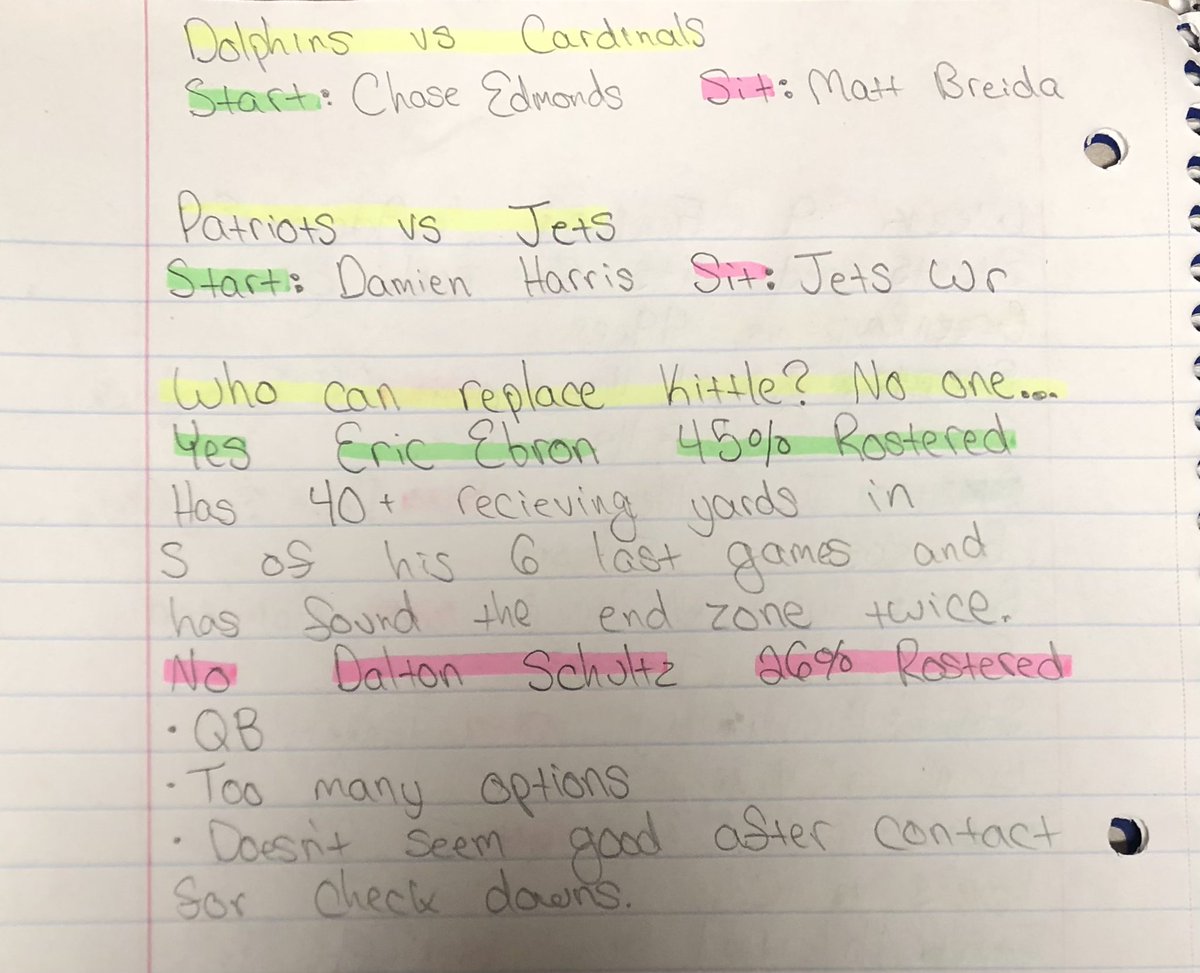 Dolphins vs Cardinals
Start: Chase Edmonds Sit: Matt Breida
Patriots vs Jets
Start: Damien Harris Sit: Jets Wr
Who can replace Kittle? No one...
Yes Eric Ebron 45% Rostered
Has 40+ recieving yards in
5 of his 6 last games and
has found the end zone twice.
No Dalton Schultz 26% Rostered
· QB
· Too many options
· Doesn't seem good after contact
for check downs.